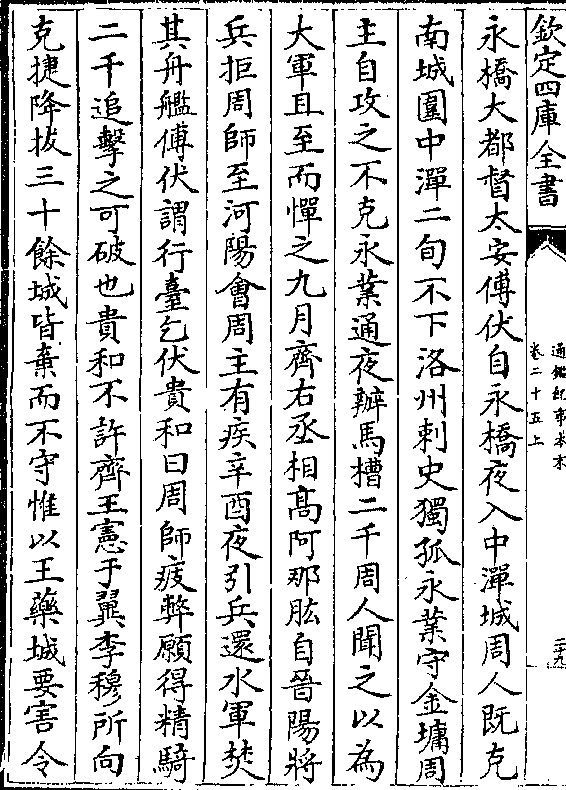 欽定四庫全書
通鑑紀事本末
卷二十五上
二十九
永橋大都督太安傅伏自永橋夜入中潬城周人既克
南城圍中潬二旬不下洛州刺史獨孤永業守金墉周
主自攻之不克永業通夜辦馬槽二千周人聞之以為
大軍且至而憚之九月齊右丞相高阿那肱自晉陽將
兵拒周師至河陽會周主有疾辛酉夜引兵還水軍焚
其舟艦傅伏謂行臺乞伏貴和曰周師疲弊願得精騎
二千追擊之可破也貴和不許齊王憲于翼李穆所向
克捷降拔三十餘城皆棄而不守惟以王藥城要害令